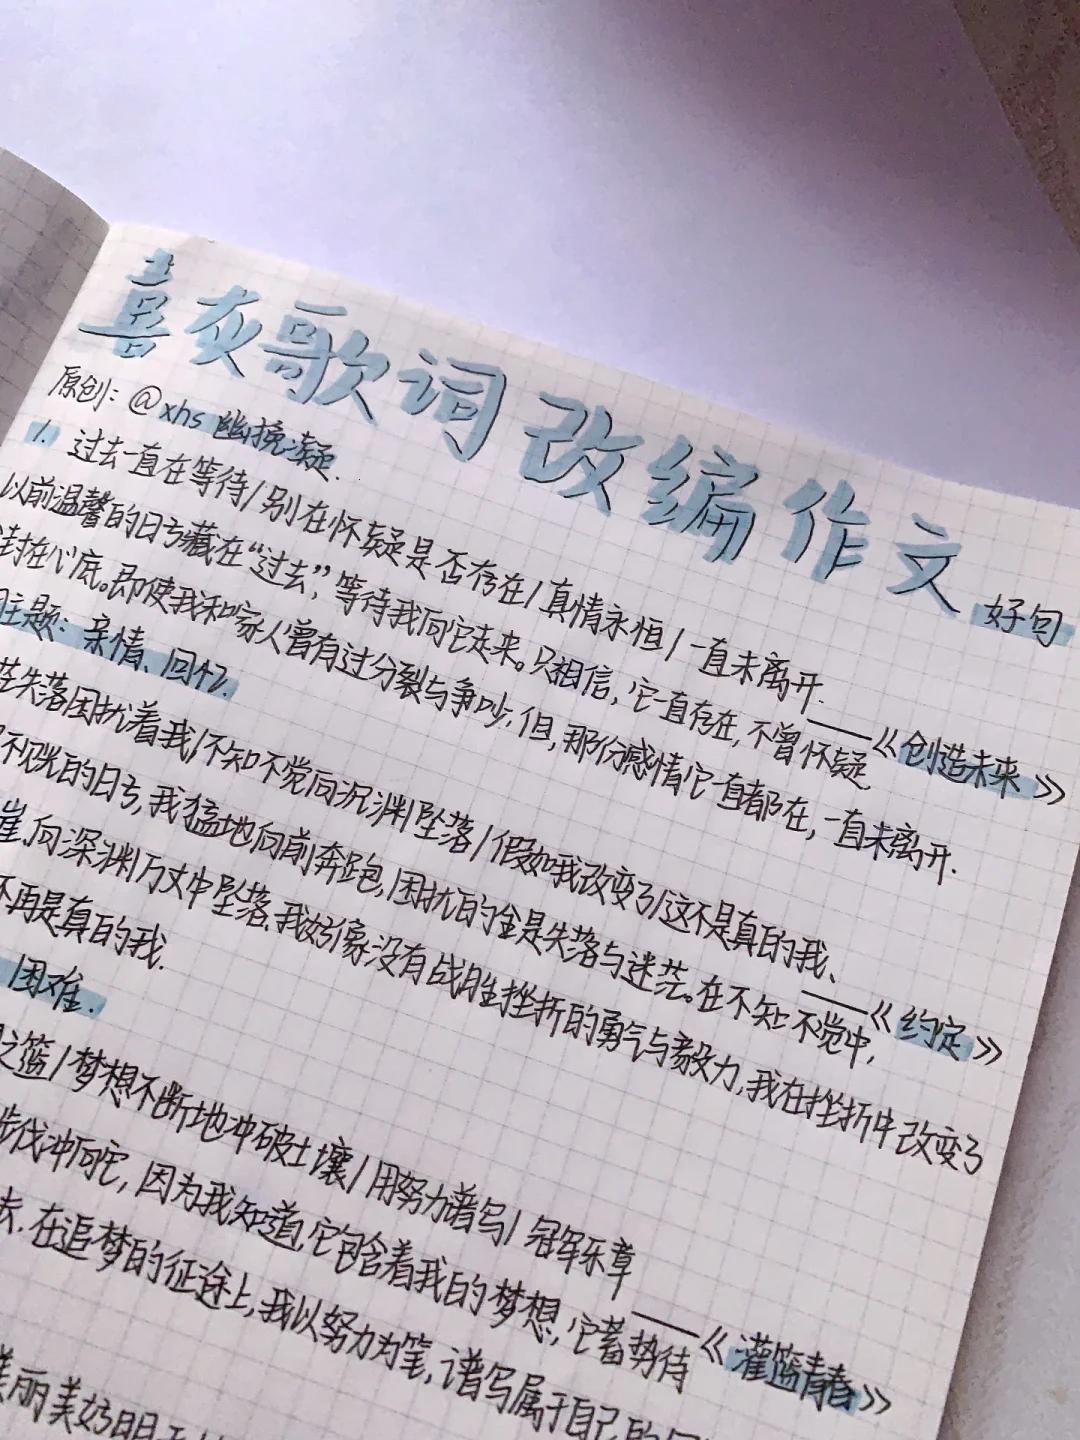 喜灰歌词改编作文
好句
原创：@xhs 幽挽凝.
1. 过去一直在等待/别在怀疑是否存在/真情永恒/一直未离开.
——《创造未来》
以前温馨的日子藏在“过去”，等待我向它走来。只相信，它一直存在，不曾怀疑
封在心底。即使我和家人曾有过分裂与争吵，但，那份感情它一直都在，一直未离开.
主题：亲情、回忆.
失落困扰着我/不知不觉向沉渊坠落/假如我改变了/这不是真的我、
——《约定》
不见光的日子，我猛地向前奔跑，困扰的全是失落与迷茫。在不知不觉中，
崖，向深渊万丈中坠落.我好像没有战胜挫折的勇气与毅力，我在挫折中改变了
不再是真的我.
困难.
之篮/梦想不断地冲破土壤/用努力谱写/冠军乐章
——《灌篮青春》
步伐冲向它，因为我知道，它包含着我的梦想，它蓄势待
去.在追梦的征途上，我以努力为笔，谱写属于自己的
美丽美好明天